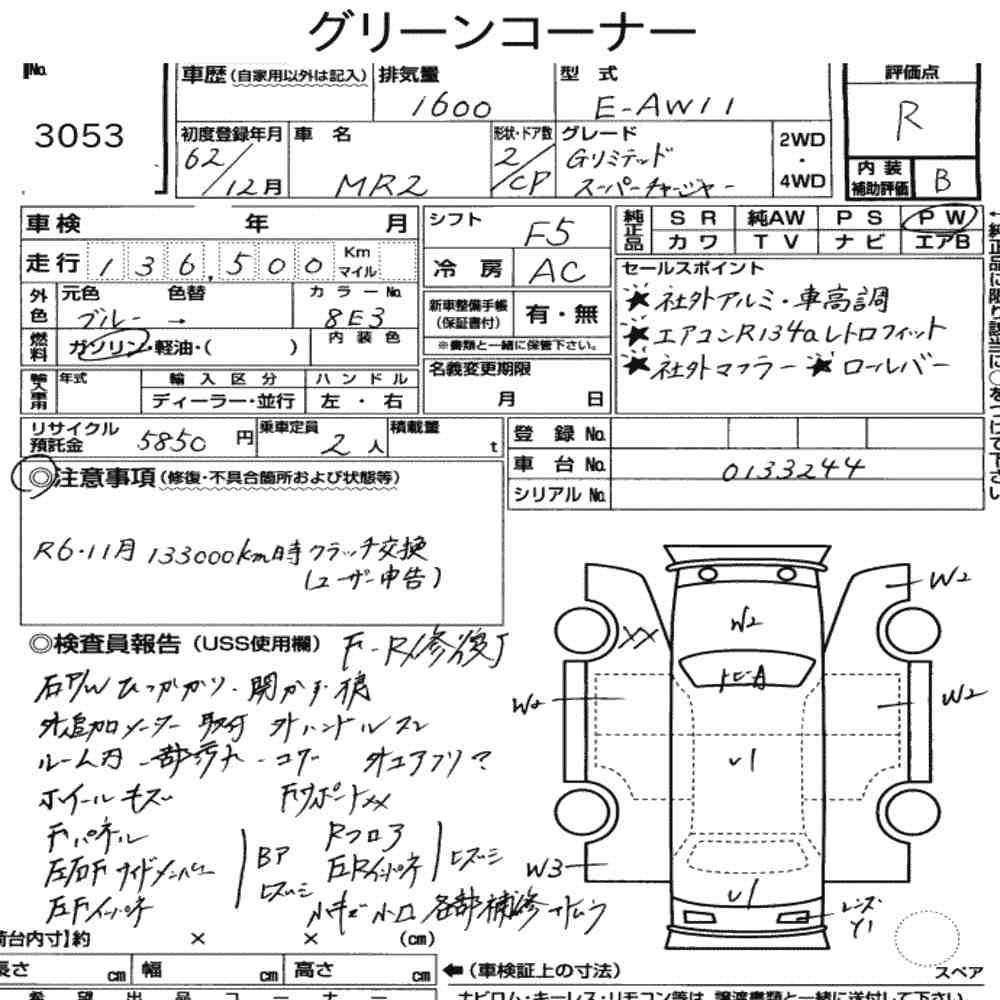 グリーンコーナー
No.
3053
車歴(自家用以外は記入)
排気量
1600
型 式
E-AW11
評価点
R
初度登録年月
62/12月
車 名
MR2
形状・ドア数
2/CP
グレード
Gリミテッド
スーパーチャージャー
2WD
・
4WD
内 装
補助評価
B
車検 年 月
走行 136,500 Km マイル
外色
元色 色替
ブルー →
カラーNo.
8E3
燃料
ガソリン・軽油・( )
内 装 色
輸入車用
年式
輸 入 区 分
ディーラー・並行
ハ ン ド ル
左 ・ 右
シフト
F5
冷 房
AC
新車整備手帳
(保証書付)
有・無
※書類と一緒に保管下さい。
名義変更期限
月 日
純正品
S R 純AW P S P W
カ ワ T V ナ ビ エアB
セールスポイント
★社外アルミ・車高調
★エアコンR134aレトロフィット
★社外マフラー ★ロールバー
←純正品に限り該当に○をつけて下さい
リサイクル
預託金
5850 円
乗車定員
2人
積載量
t
登 録 No.
車 台 No.
0133244
シリアル No.
◎注意事項(修復・不具合箇所および状態等)
R6・11月 133000km時クラッチ交換
(ユーザー申告)
◎検査員報告(USS使用欄)
F-R/修復J
右P/Wひっかかり・
外追加メーター取付 外ハンドル
ルーム内一部汚れ・コゲ
ホイールキズ FサポートXX
Fパネル
左右Fサイドメンバー
左Fインパネ
Rフロア
左Rインパネ
小キズ小凹 各部補修
W2
XX
W2
W2
W2
トビA
U1
W3
U1
レンズ
Y1
荷台内寸】約 × × (cm)
長さ cm 幅 cm 高さ cm
←(車検証上の寸法)
スペア
希 望 出 品 コ ー ナ ー
ナビロム・キーレス・リモコン等は、譲渡書類と一緒に送付して下さい。